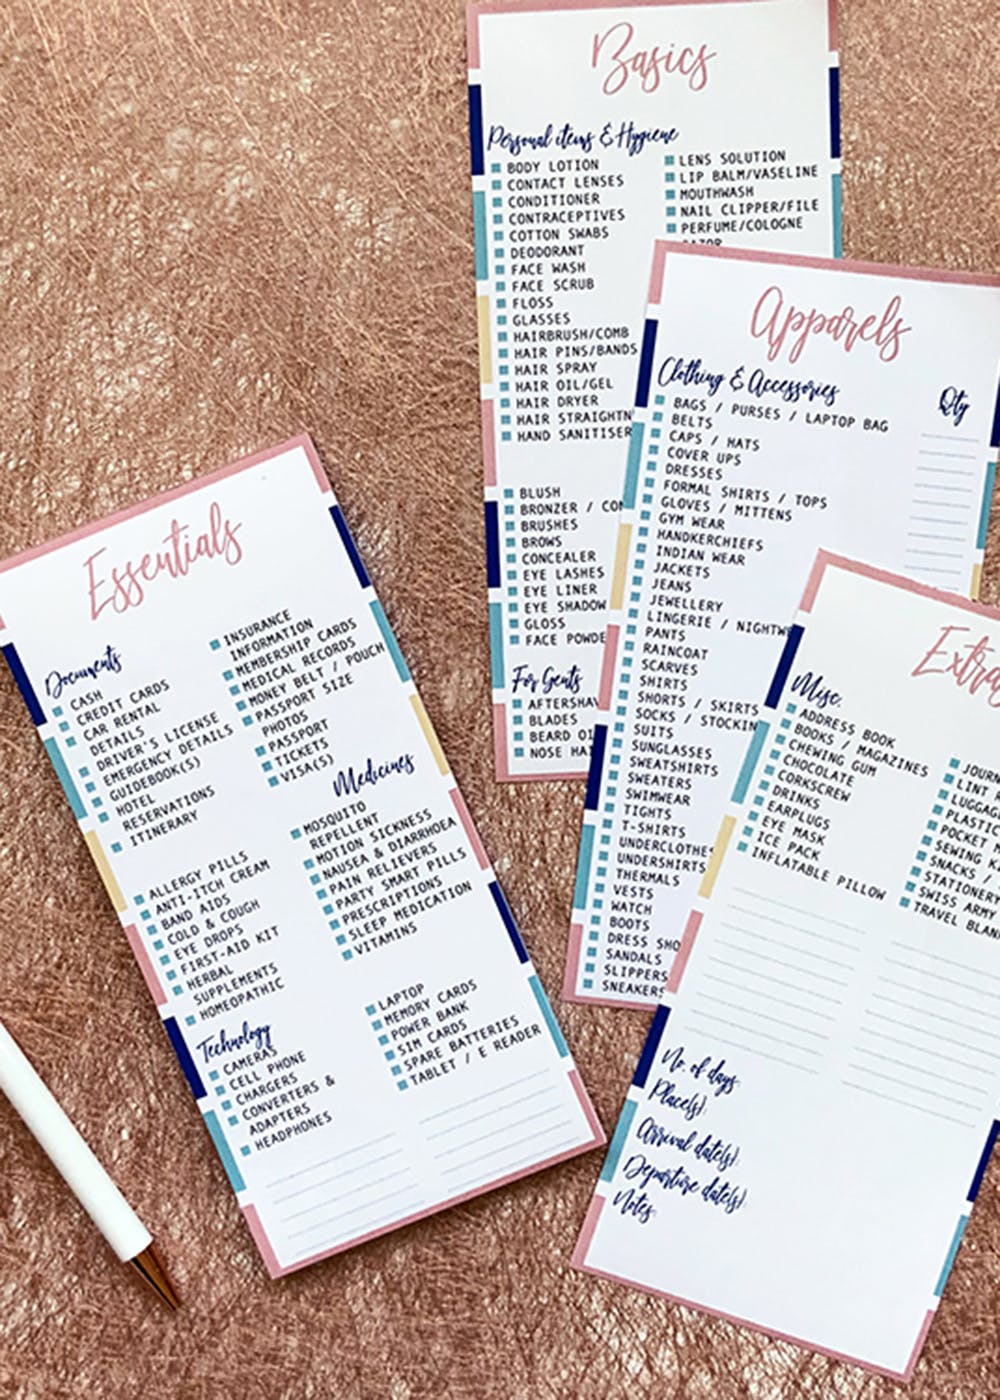 Basics
Personal items & Hygiene
BODY LOTION
CONTACT LENSES
CONDITIONER
CONTRACEPTIVES
COTTON SWABS
DEODORANT
FACE WASH
FACE SCRUB
FLOSS
GLASSES
HAIRBRUSH/COMB
HAIR PINS/BANDS
HAIR SPRAY
HAIR OIL/GEL
HAIR DRYER
HAIR STRAIGHTN
HAND SANITISER
LENS SOLUTION
LIP BALM/VASELINE
MOUTHWASH
NAIL CLIPPER/FILE
PERFUME/COLOGNE
RAZOR
BLUSH
BRONZER / CON
BRUSHES
BROWS
CONCEALER
EYE LASHES
EYE LINER
EYE SHADOW
GLOSS
FACE POWDE
For Gents
AFTERSHAV
BLADES
BEARD OI
NOSE HAI
Apparels
Clothing & Accessories
Qty
BAGS / PURSES / LAPTOP BAG
BELTS
CAPS / HATS
COVER UPS
DRESSES
FORMAL SHIRTS / TOPS
GLOVES / MITTENS
GYM WEAR
HANDKERCHIEFS
INDIAN WEAR
JACKETS
JEANS
JEWELLERY
LINGERIE / NIGHTW
PANTS
RAINCOAT
SCARVES
SHIRTS
SHORTS / SKIRTS
SOCKS / STOCKIN
SUITS
SUNGLASSES
SWEATSHIRTS
SWEATERS
SWIMWEAR
TIGHTS
T-SHIRTS
UNDERCLOTHES
UNDERSHIRTS
THERMALS
VESTS
WATCH
BOOTS
DRESS SHO
SANDALS
SLIPPERS
SNEAKERS
Essentials
Documents
CASH
CREDIT CARDS
CAR RENTAL
DETAILS
DRIVER'S LICENSE
EMERGENCY DETAILS
GUIDEBOOK(S)
HOTEL
RESERVATIONS
ITINERARY
INSURANCE
INFORMATION
MEMBERSHIP CARDS
MEDICAL RECORDS
MONEY BELT / POUCH
PASSPORT SIZE
PHOTOS
PASSPORT
TICKETS
VISA(S)
Medicines
ALLERGY PILLS
ANTI-ITCH CREAM
BAND AIDS
COLD & COUGH
EYE DROPS
FIRST-AID KIT
HERBAL
SUPPLEMENTS
HOMEOPATHIC
MOSQUITO
REPELLENT
MOTION SICKNESS
NAUSEA & DIARRHOEA
PAIN RELIEVERS
PARTY SMART PILLS
PRESCRIPTIONS
SLEEP MEDICATION
VITAMINS
Technology
CAMERAS
CELL PHONE
CHARGERS
CONVERTERS &
ADAPTERS
HEADPHONES
LAPTOP
MEMORY CARDS
POWER BANK
SIM CARDS
SPARE BATTERIES
TABLET / E READER
Extra
Misc.
ADDRESS BOOK
BOOKS / MAGAZINES
CHEWING GUM
CHOCOLATE
CORKSCREW
DRINKS
EARPLUGS
EYE MASK
ICE PACK
INFLATABLE PILLOW
JOURN
LINT R
LUGGAG
PLASTIC
POCKET M
SEWING K
SNACKS /
STATIONERY
SWISS ARMY
TRAVEL BLAN
No. of days:
Place(s):
Arrival date(s):
Departure date(s):
Notes: